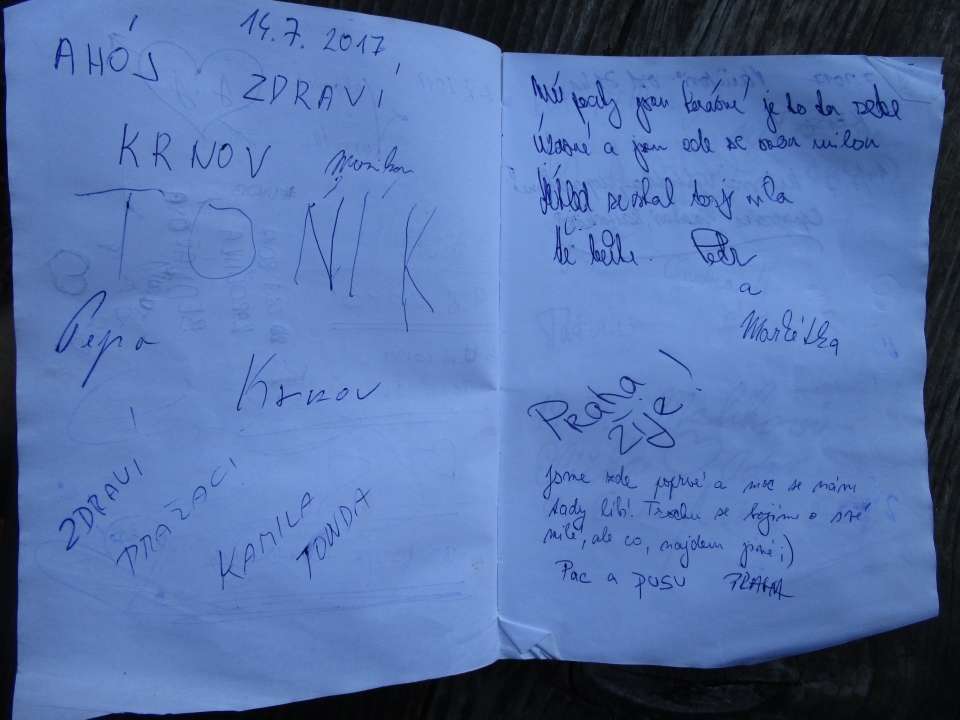 14.7. 2017
AHÓJ
ZDRAVÍ
KRNOV
TONÍK
Pepa
Krnov
ZDRAVÍ
PRAŽACI
KAMILA
TONDA
pocity jsou krásné je to tu
úžasné a jsem zde se svou milou
se stal
Petr
a
Markétka
Praha
žije!
Jsme zde poprvé a moc se nám
tady líbí. Trochu se bojím o své
milé, ale co, najdem jiné ;)
Pac a pusu PRAHA